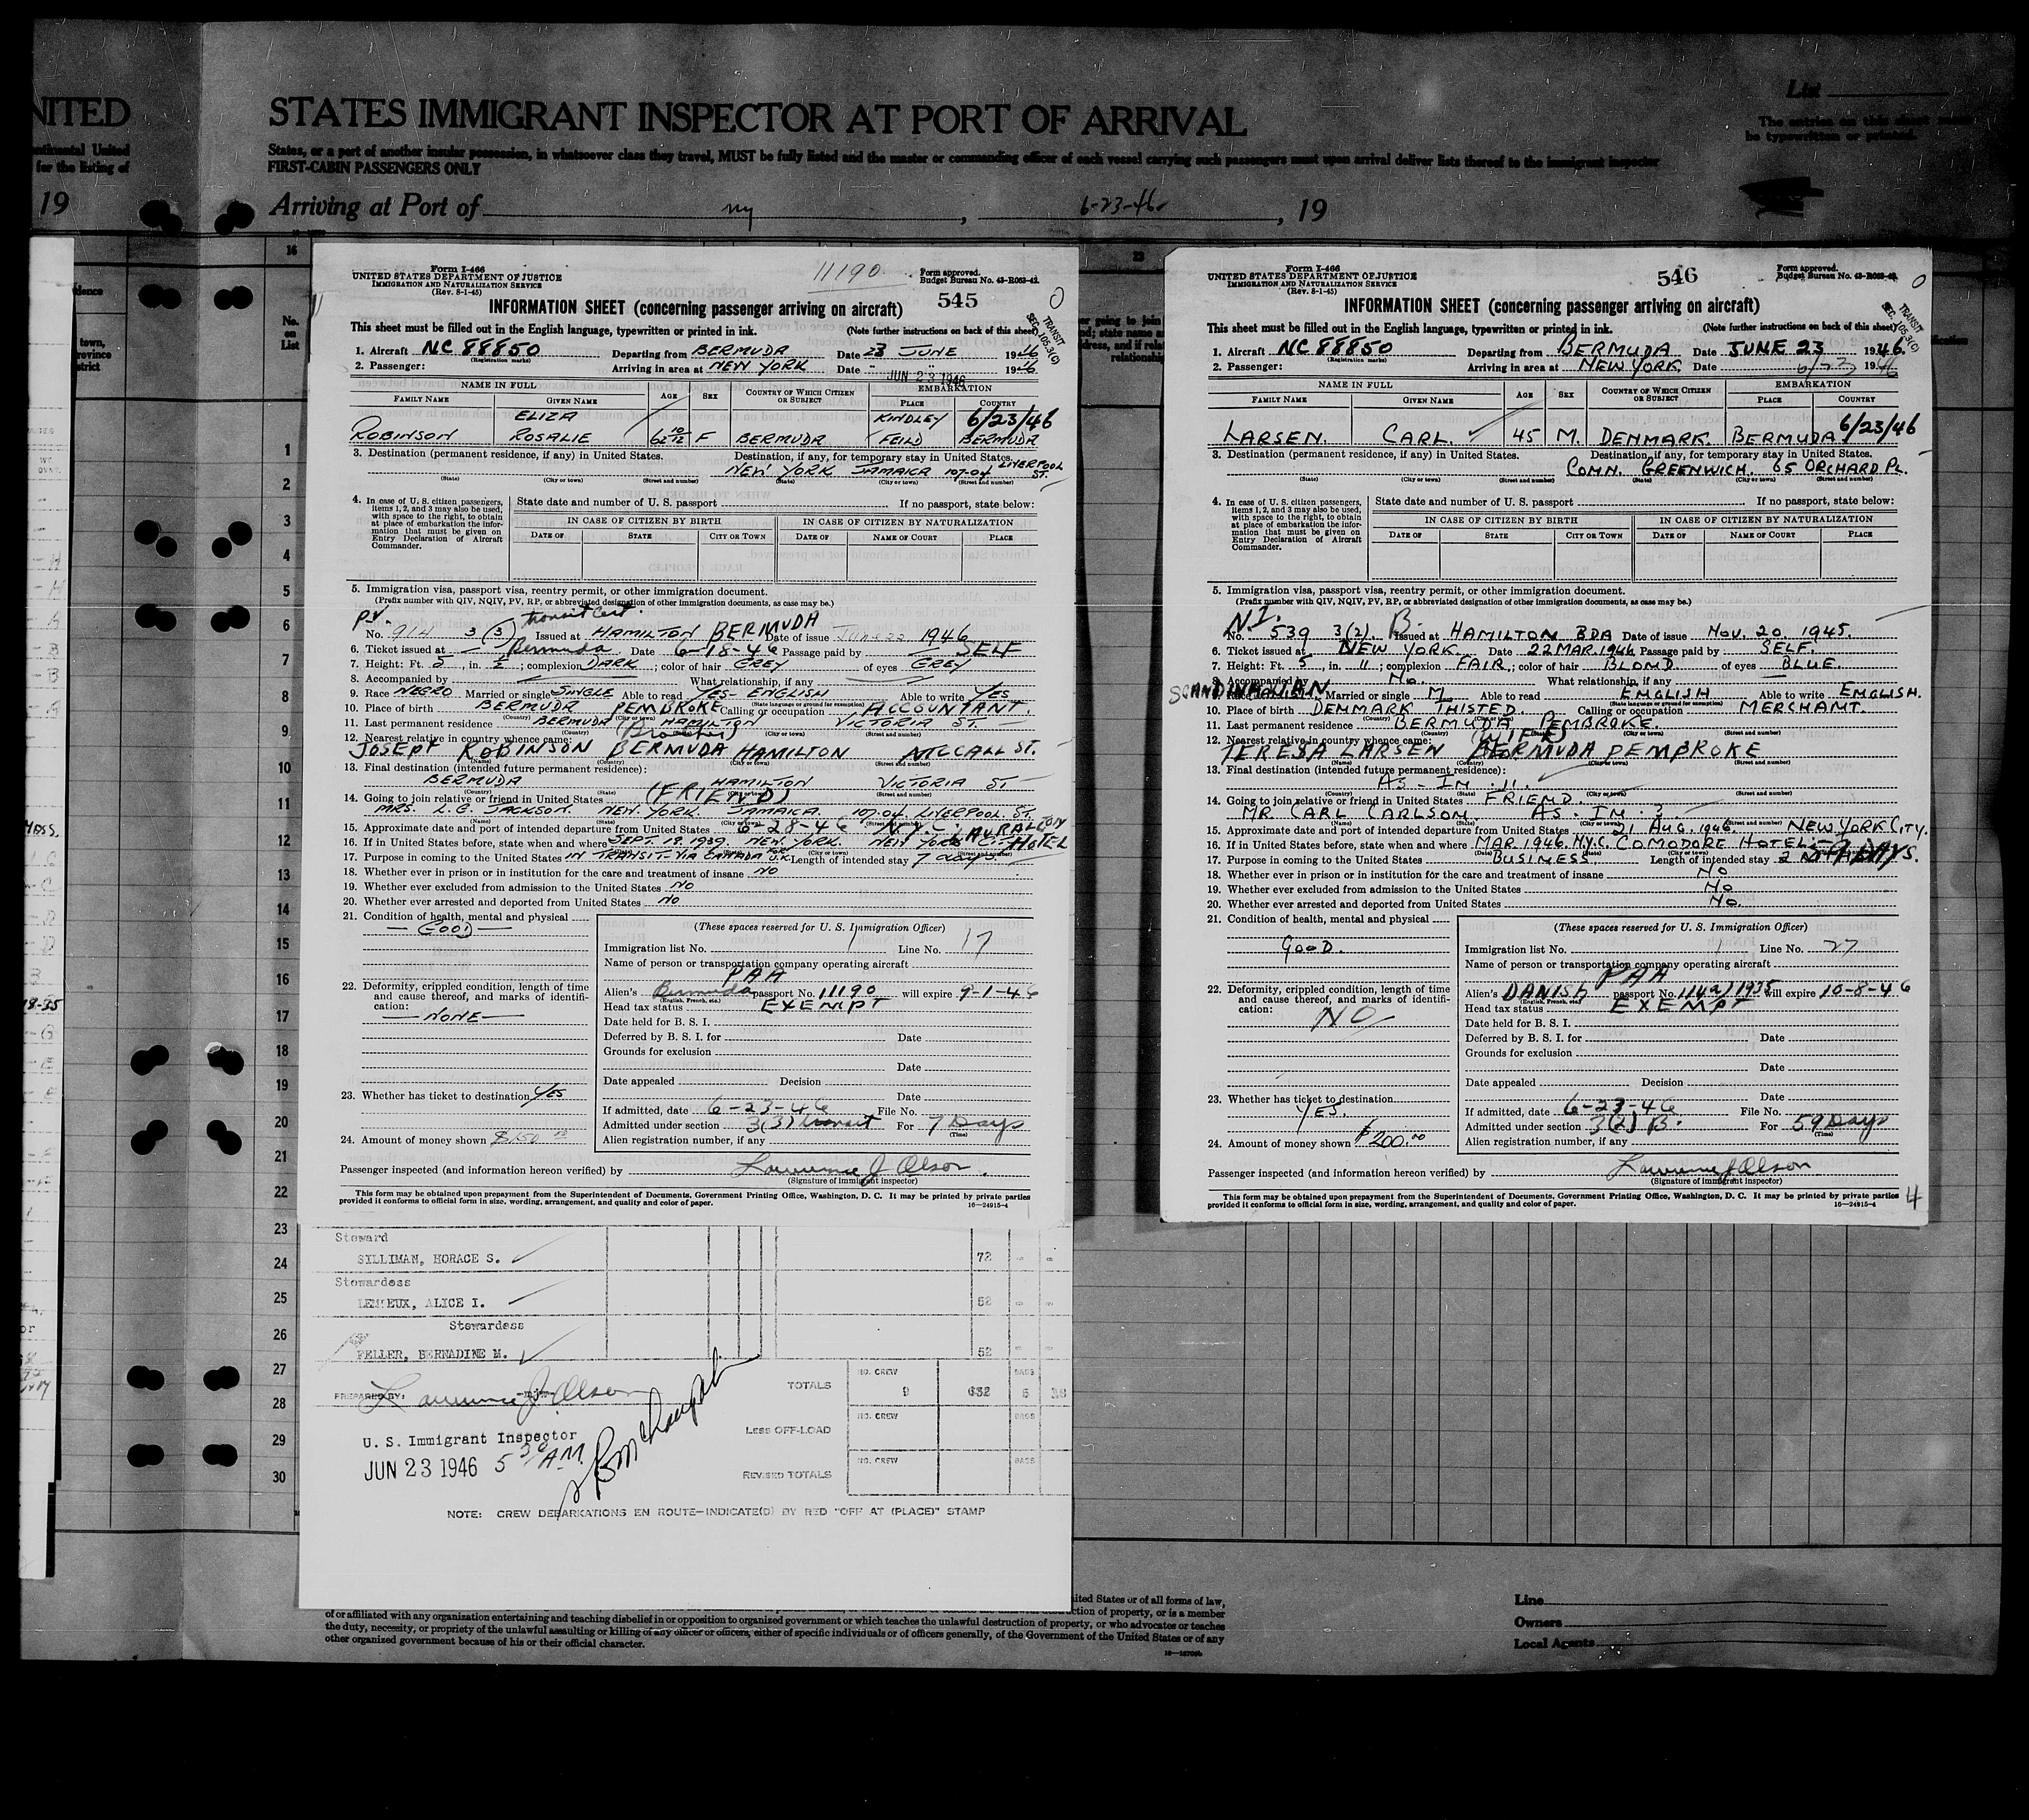 NITED
STATES IMMIGRANT INSPECTOR AT PORT OF ARRIVAL
List
The entries on this sheet must
be typewritten or printed.
ntinental United
for the listing of
States, or a part of another insular possession, in whatsoever class they travel, MUST be fully listed and the master or commanding officer of each vessel carrying such passengers must upon arrival deliver lists thereof to the immigrant inspector
FIRST-CABIN PASSENGERS ONLY
19
Arriving at Port of NY, 6-23-46, 19
16
No. on List
1
2
3
4
5
6
7
8
9
10
11
12
13
14
15
16
17
18
19
20
21
22
23
24
25
26
27
28
29
30
Form I-466
UNITED STATES DEPARTMENT OF JUSTICE
IMMIGRATION AND NATURALIZATION SERVICE
(Rev. 8-1-45)
11190
Form approved.
Budget Bureau No. 43-R063-42.
545
TRANSIT
SEC. 105.3(C)
INFORMATION SHEET (concerning passenger arriving on aircraft)
This sheet must be filled out in the English language, typewritten or printed in ink. (Note further instructions on back of this sheet)
1. Aircraft NC 88850 Departing from BERMUDA Date 23 JUNE 1946
(Registration marks)
2. Passenger: Arriving in area at NEW YORK Date " JUN 23 1946 " 1946
NAME IN FULL AGE SEX COUNTRY OF WHICH CITIZEN OR SUBJECT EMBARKATION
FAMILY NAME GIVEN NAME PLACE COUNTRY
ELIZA KINDLEY 6/23/46
ROBINSON ROSALIE 62 10/12 F BERMUDA FEILD BERMUDA
3. Destination (permanent residence, if any) in United States. Destination, if any, for temporary stay in United States.
NEW YORK JAMAICA 107-04 LIVERPOOL ST.
(State) (City or town) (Street and number) (State) (City or town) (Street and number)
4. In case of U. S. citizen passengers, items 1, 2, and 3 may also be used, with space to the right, to obtain at place of embarkation the information that must be given on Entry Declaration of Aircraft Commander.
State date and number of U. S. passport If no passport, state below:
IN CASE OF CITIZEN BY BIRTH IN CASE OF CITIZEN BY NATURALIZATION
DATE OF STATE CITY OR TOWN DATE OF NAME OF COURT PLACE
5. Immigration visa, passport visa, reentry permit, or other immigration document.
(Prefix number with QIV, NQIV, PV, RP, or abbreviated designation of other immigration documents, as case may be.)
PV. transit Cert.
No. 914 3 (3) Issued at HAMILTON BERMUDA Date of issue June 22 1946
6. Ticket issued at Bermuda Date 6-18-46 Passage paid by SELF
7. Height: Ft. 5, in. 2; complexion DARK; color of hair GREY of eyes GREY
8. Accompanied by What relationship, if any
9. Race NEGRO Married or single SINGLE Able to read YES-ENGLISH Able to write YES
(State language or ground for exemption)
10. Place of birth BERMUDA PEMBROKE Calling or occupation ACCOUNTANT.
(Country) (City or town)
11. Last permanent residence BERMUDA HAMILTON VICTORIA ST.
(Country) (City or town) (Street and number)
12. Nearest relative in country whence came: (Brother)
JOSEPH ROBINSON BERMUDA HAMILTON MCCALL ST.
(Name) (Country) (City or town) (Street and number)
13. Final destination (intended future permanent residence):
BERMUDA HAMILTON VICTORIA ST
(Country) (State) (City or town) (Street and number)
14. Going to join relative or friend in United States (FRIEND)
MRS. L. G. JACKSON. NEW YORK. JAMAICA 107-04 LIVERPOOL ST.
(Name) (State) (City or town) (Street and number)
15. Approximate date and port of intended departure from United States 6-28-46 N.Y.C.
16. If in United States before, state when and where SEPT. 19. 1939. NEW YORK. NEW YORK CITY HOTEL
17. Purpose in coming to the United States IN TRANSIT-VIA CANADA FOR U.K. Length of intended stay 7 days
18. Whether ever in prison or in institution for the care and treatment of insane NO
19. Whether ever excluded from admission to the United States NO
20. Whether ever arrested and deported from United States NO
21. Condition of health, mental and physical
GOOD
22. Deformity, crippled condition, length of time and cause thereof, and marks of identification:
NONE
23. Whether has ticket to destination YES
24. Amount of money shown $150.00
(These spaces reserved for U. S. Immigration Officer)
Immigration list No. 1 Line No. 17
Name of person or transportation company operating aircraft
PAA
Alien's Bermuda passport No. 11190 will expire 9-1-46
(English, French, etc.)
Head tax status EXEMPT
Date held for B. S. I.
Deferred by B. S. I. for Date
Grounds for exclusion
Date
Date appealed Decision
Date
If admitted, date 6-23-46 File No.
Admitted under section 3(3) transit For 7 Days
(Time)
Alien registration number, if any
Passenger inspected (and information hereon verified) by Lawrence J Olson
(Signature of immigrant inspector)
This form may be obtained upon prepayment from the Superintendent of Documents, Government Printing Office, Washington, D. C. It may be printed by private parties
provided it conforms to official form in size, wording, arrangement, and quality and color of paper.
16—24915-4
Steward
SILLIMAN, HORACE S. 72
Stewardess
LEMIEUX, ALICE I. 52
Stewardess
FELLER, BERNADINE M. 52
PREPARED BY: Lawrence J. Olson
TOTALS
NO. CREW 9 632 PASS 5
LESS OFF-LOAD
NO. CREW PASS
REVISED TOTALS
NO. CREW PASS
U. S. Immigrant Inspector
JUN 23 1946 5 30 AM
NOTE: CREW DEBARKATIONS EN ROUTE—INDICATE(D) BY RED "OFF AT (PLACE)" STAMP
Form I-466
UNITED STATES DEPARTMENT OF JUSTICE
IMMIGRATION AND NATURALIZATION SERVICE
(Rev. 8-1-45)
546
Form approved.
Budget Bureau No. 43-R063-42.
TRANSIT
SEC. 105.3(C)
INFORMATION SHEET (concerning passenger arriving on aircraft)
This sheet must be filled out in the English language, typewritten or printed in ink. (Note further instructions on back of this sheet)
1. Aircraft NC 88850 Departing from BERMUDA Date JUNE 23 1946.
(Registration marks)
2. Passenger: Arriving in area at NEW YORK Date 6/23 1946
NAME IN FULL AGE SEX COUNTRY OF WHICH CITIZEN OR SUBJECT EMBARKATION
FAMILY NAME GIVEN NAME PLACE COUNTRY
LARSEN. CARL. 45 M. DENMARK. BERMUDA 6/23/46
3. Destination (permanent residence, if any) in United States. Destination, if any, for temporary stay in United States.
CONN. GREENWICH. 65 ORCHARD PL.
(State) (City or town) (Street and number) (State) (City or town) (Street and number)
4. In case of U. S. citizen passengers, items 1, 2, and 3 may also be used, with space to the right, to obtain at place of embarkation the information that must be given on Entry Declaration of Aircraft Commander.
State date and number of U. S. passport If no passport, state below:
IN CASE OF CITIZEN BY BIRTH IN CASE OF CITIZEN BY NATURALIZATION
DATE OF STATE CITY OR TOWN DATE OF NAME OF COURT PLACE
5. Immigration visa, passport visa, reentry permit, or other immigration document.
(Prefix number with QIV, NQIV, PV, RP, or abbreviated designation of other immigration documents, as case may be.)
N.I. B.
No. 539 3(2). Issued at HAMILTON BDA Date of issue NOV. 20. 1945.
6. Ticket issued at NEW YORK. Date 22 MAR. 1946 Passage paid by SELF.
7. Height: Ft. 5, in. 11; complexion FAIR; color of hair BLOND. of eyes BLUE.
8. Accompanied by NO. What relationship, if any
SCANDINAVIAN. Married or single M. Able to read ENGLISH Able to write ENGLISH.
(State language or ground for exemption)
10. Place of birth DENMARK THISTED. Calling or occupation MERCHANT.
(Country) (City or town)
11. Last permanent residence BERMUDA PEMBROKE.
(Country) (City or town) (Street and number)
12. Nearest relative in country whence came: (WIFE)
TERESA LARSEN BERMUDA PEMBROKE
(Name) (Country) (City or town) (Street and number)
13. Final destination (intended future permanent residence):
AS-IN 11.
(Country) (State) (City or town) (Street and number)
14. Going to join relative or friend in United States FRIEND.
MR. CARL CARLSON. AS. IN. 3.
(Name) (State) (City or town) (Street and number)
15. Approximate date and port of intended departure from United States 21 AUG. 1946. NEW YORK CITY.
16. If in United States before, state when and where MAR. 1946. N.Y.C. COMODORE HOTEL
(Date) (City or town)
17. Purpose in coming to the United States BUSINESS Length of intended stay 59 DAYS.
18. Whether ever in prison or in institution for the care and treatment of insane NO
19. Whether ever excluded from admission to the United States NO
20. Whether ever arrested and deported from United States NO.
21. Condition of health, mental and physical
GOOD.
22. Deformity, crippled condition, length of time and cause thereof, and marks of identification:
NO
23. Whether has ticket to destination
YES.
24. Amount of money shown $200.00
(These spaces reserved for U. S. Immigration Officer)
Immigration list No. 1 Line No. 27
Name of person or transportation company operating aircraft
PAA
Alien's DANISH passport No. 1142/1935 will expire 10-8-46
(English, French, etc.)
Head tax status EXEMPT
Date held for B. S. I.
Deferred by B. S. I. for Date
Grounds for exclusion
Date
Date appealed Decision
Date
If admitted, date 6-23-46 File No.
Admitted under section 3(2) B. For 59 Days
(Time)
Alien registration number, if any
Passenger inspected (and information hereon verified) by Lawrence J Olson
(Signature of immigrant inspector)
This form may be obtained upon prepayment from the Superintendent of Documents, Government Printing Office, Washington, D. C. It may be printed by private parties
provided it conforms to official form in size, wording, arrangement, and quality and color of paper.
16—24915-4
4
ited States or of all forms of law,
of or affiliated with any organization entertaining and teaching disbelief in or opposition to organized government or which teaches the unlawful destruction of property, or is a member
the duty, necessity, or propriety of the unlawful assaulting or killing of any officer or officers, either of specific individuals or of officers generally, of the Government of the United States or of any
other organized government because of his or their official character.
Line
Owners
Local Agents